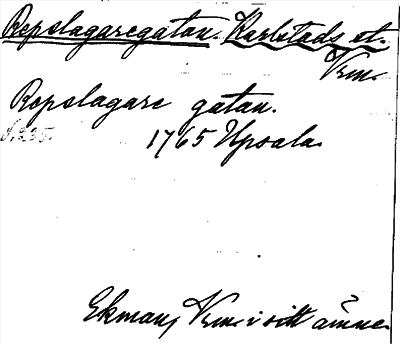 Repslagaregatan. Karlstads st.
Vrm.
Ropslagare gatan.
s. 235.
1765 Upsala.
Ekman, Vrm. i sitt ämne.